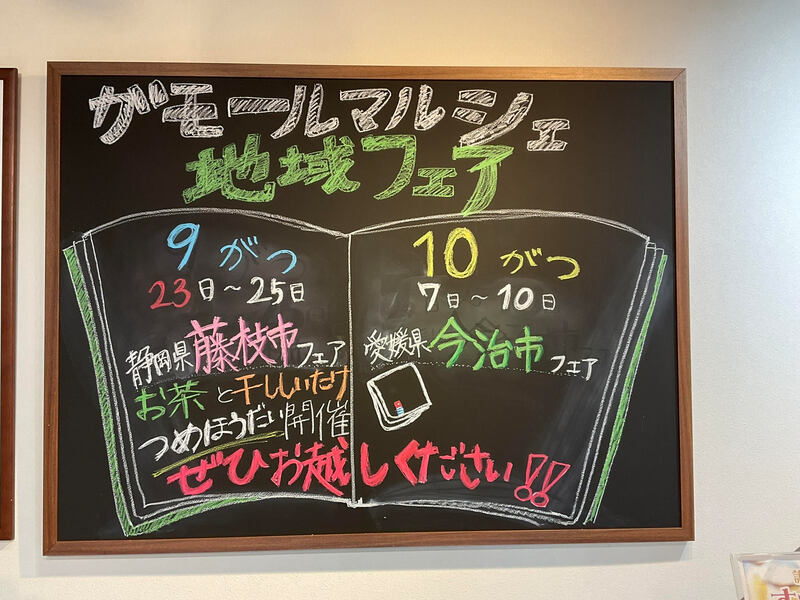 がモールマルシェ
地域フェア
9がつ
23日～25日
静岡県藤枝市フェア
お茶と干ししいたけ
つめほうだい開催
10がつ
7日～10日
愛媛県今治市フェア
ぜひお越しください!!